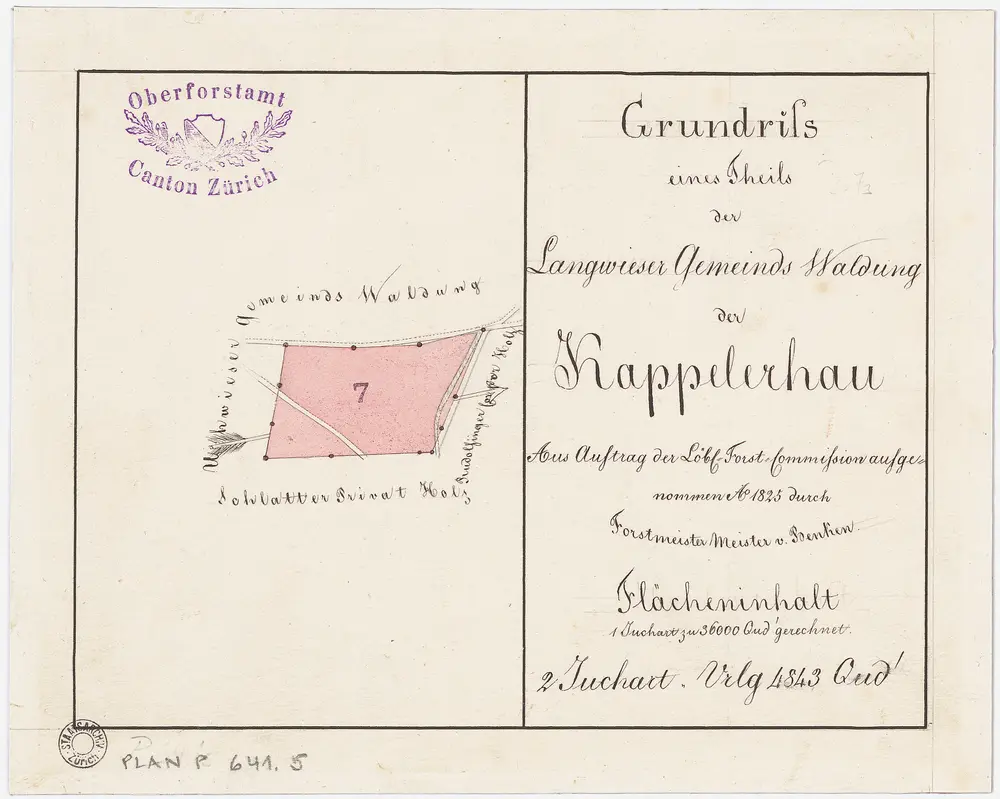 Oberforstamt
Canton Zürich
Gemeinds Waldung
7
Rudolfinger Holz
Schlatter Privat Holz
Grundriſs
eines Theils
der
Langwieser Gemeinds Waldung
der
Kappelerhau
Aus Auftrag der Löbl. Forst-Commiſsion aufge-
nommen Aº 1825 durch
Forstmeister Meister v. Benken.
Flächeninhalt
1 Juchart zu 36000 Qud' gerechnet.
2 Juchart. Vrlg 4843 Qud'
STAATSARCHIV
Zürich
PLAN P 641.5